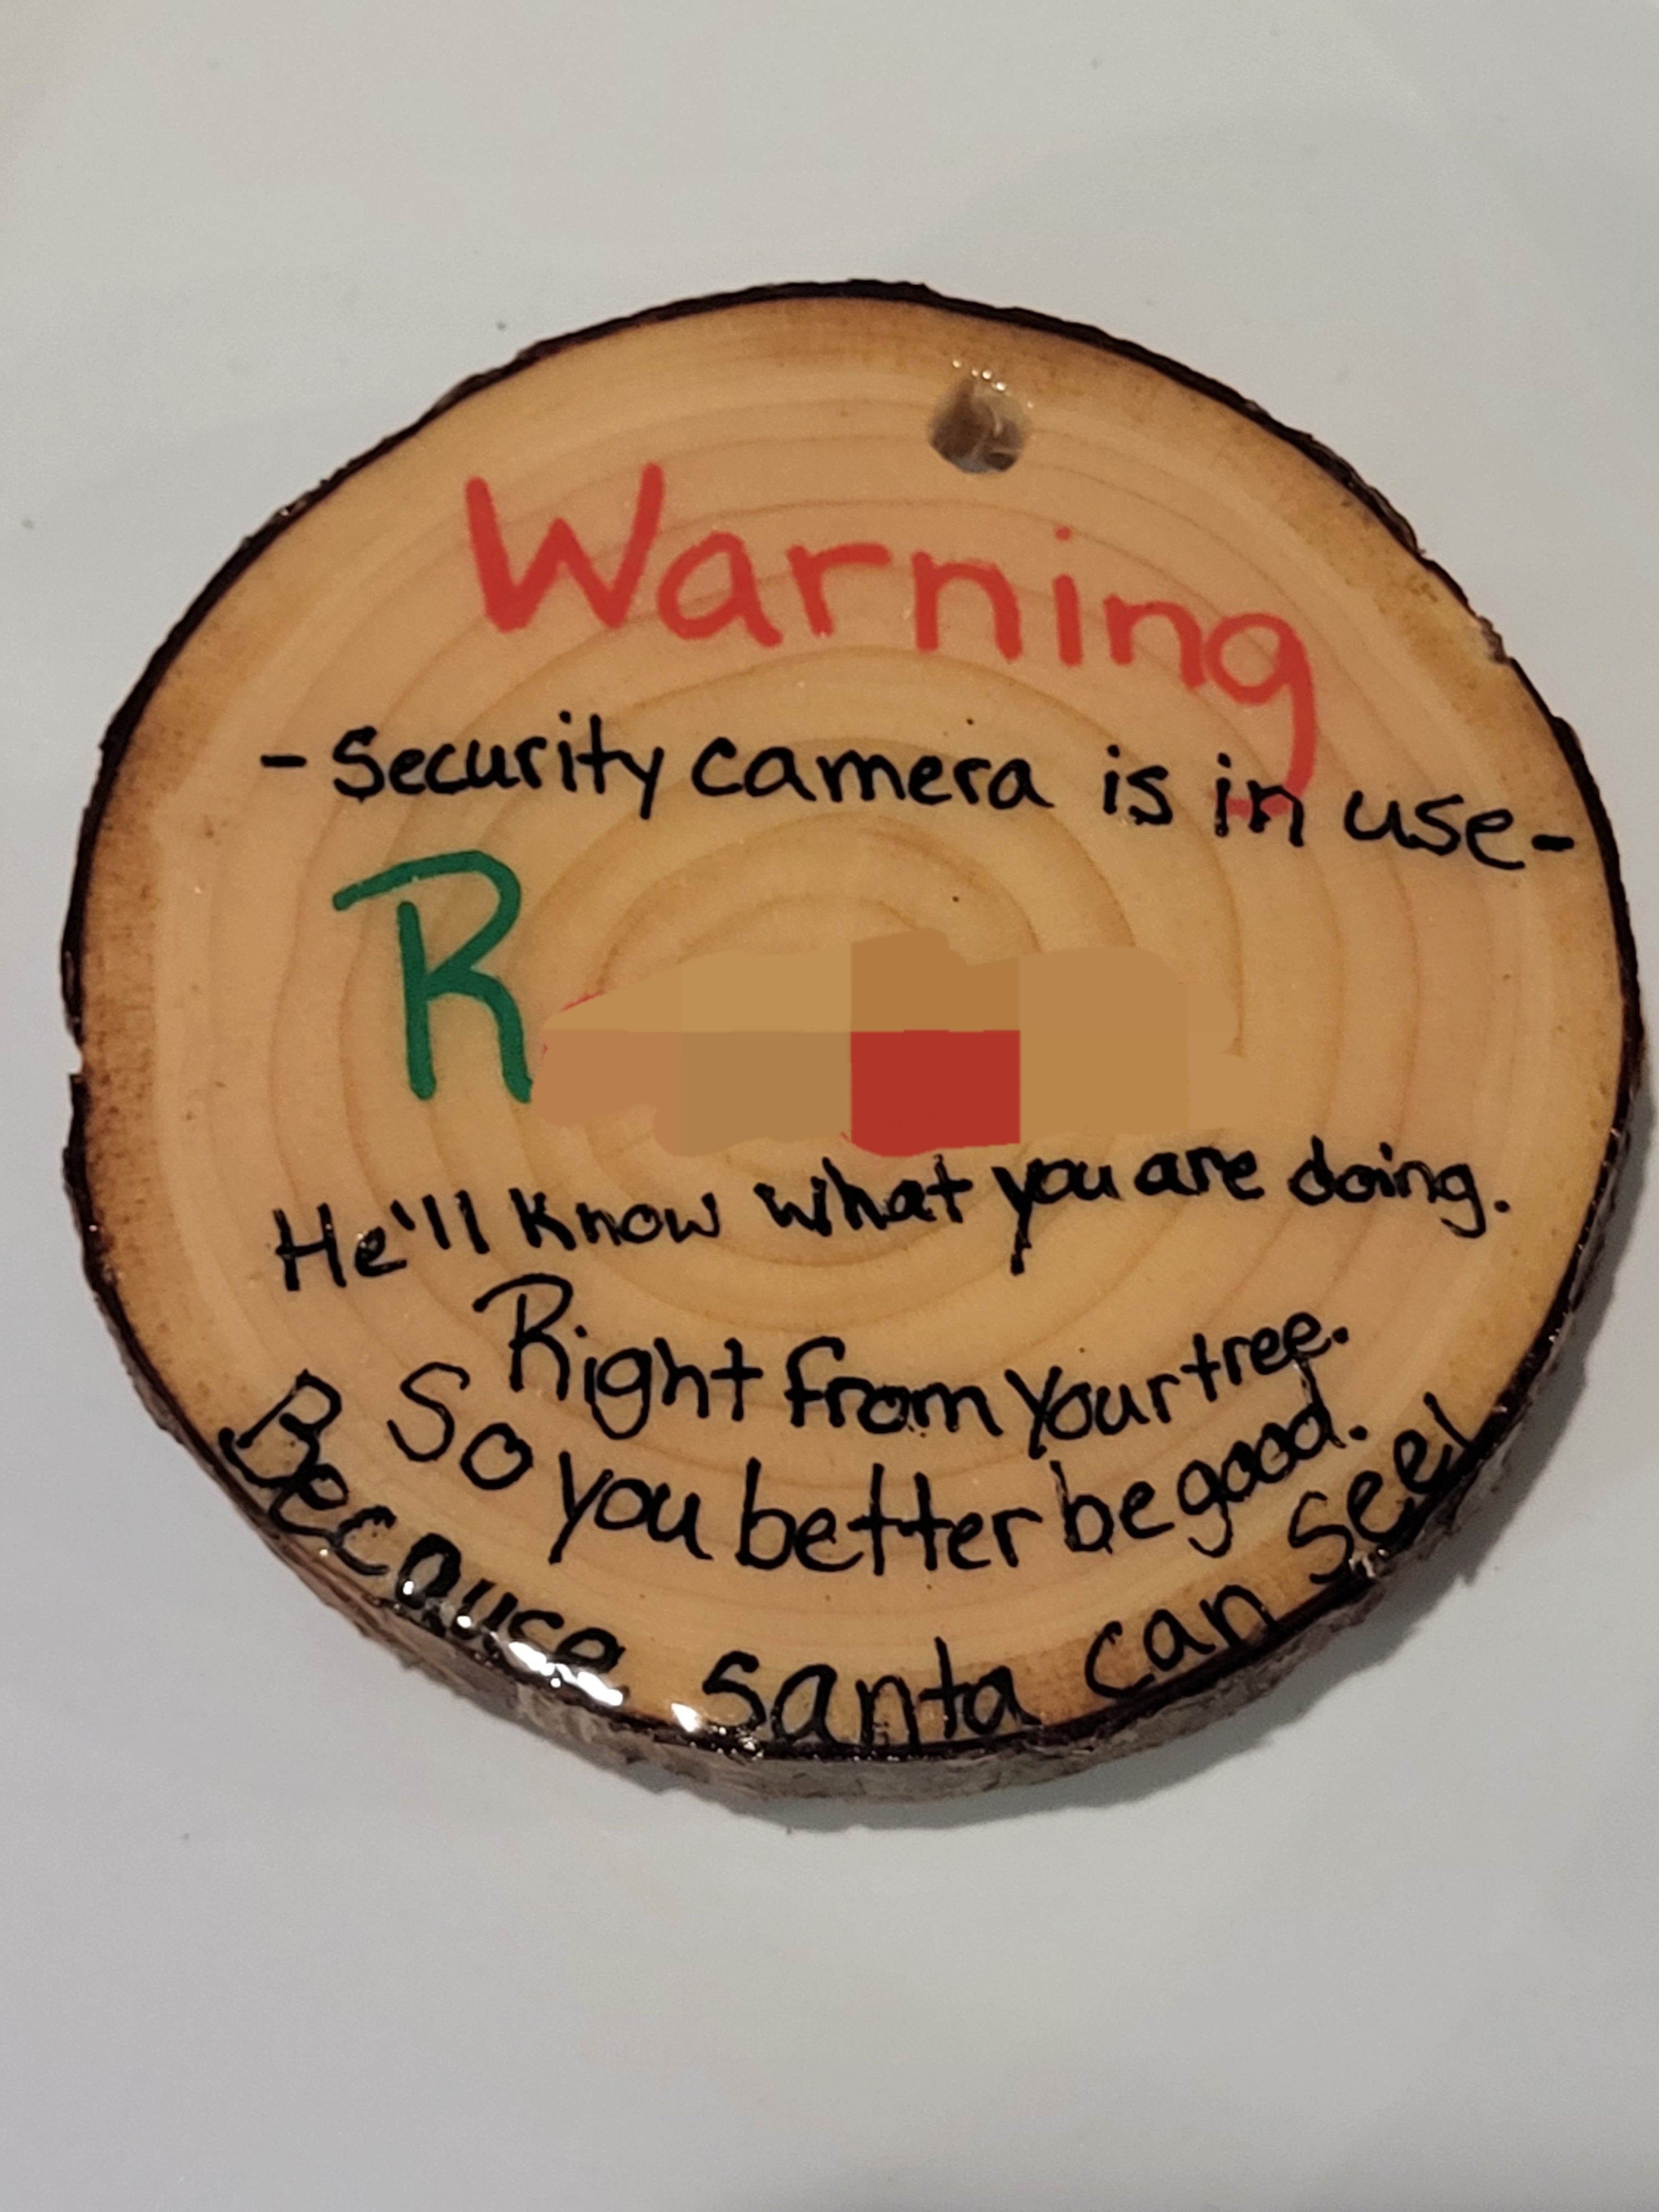 Warning
-Security camera is in use-
R
He'll Know what you are doing.
Right from your tree.
So you better be good.
Because santa can see!